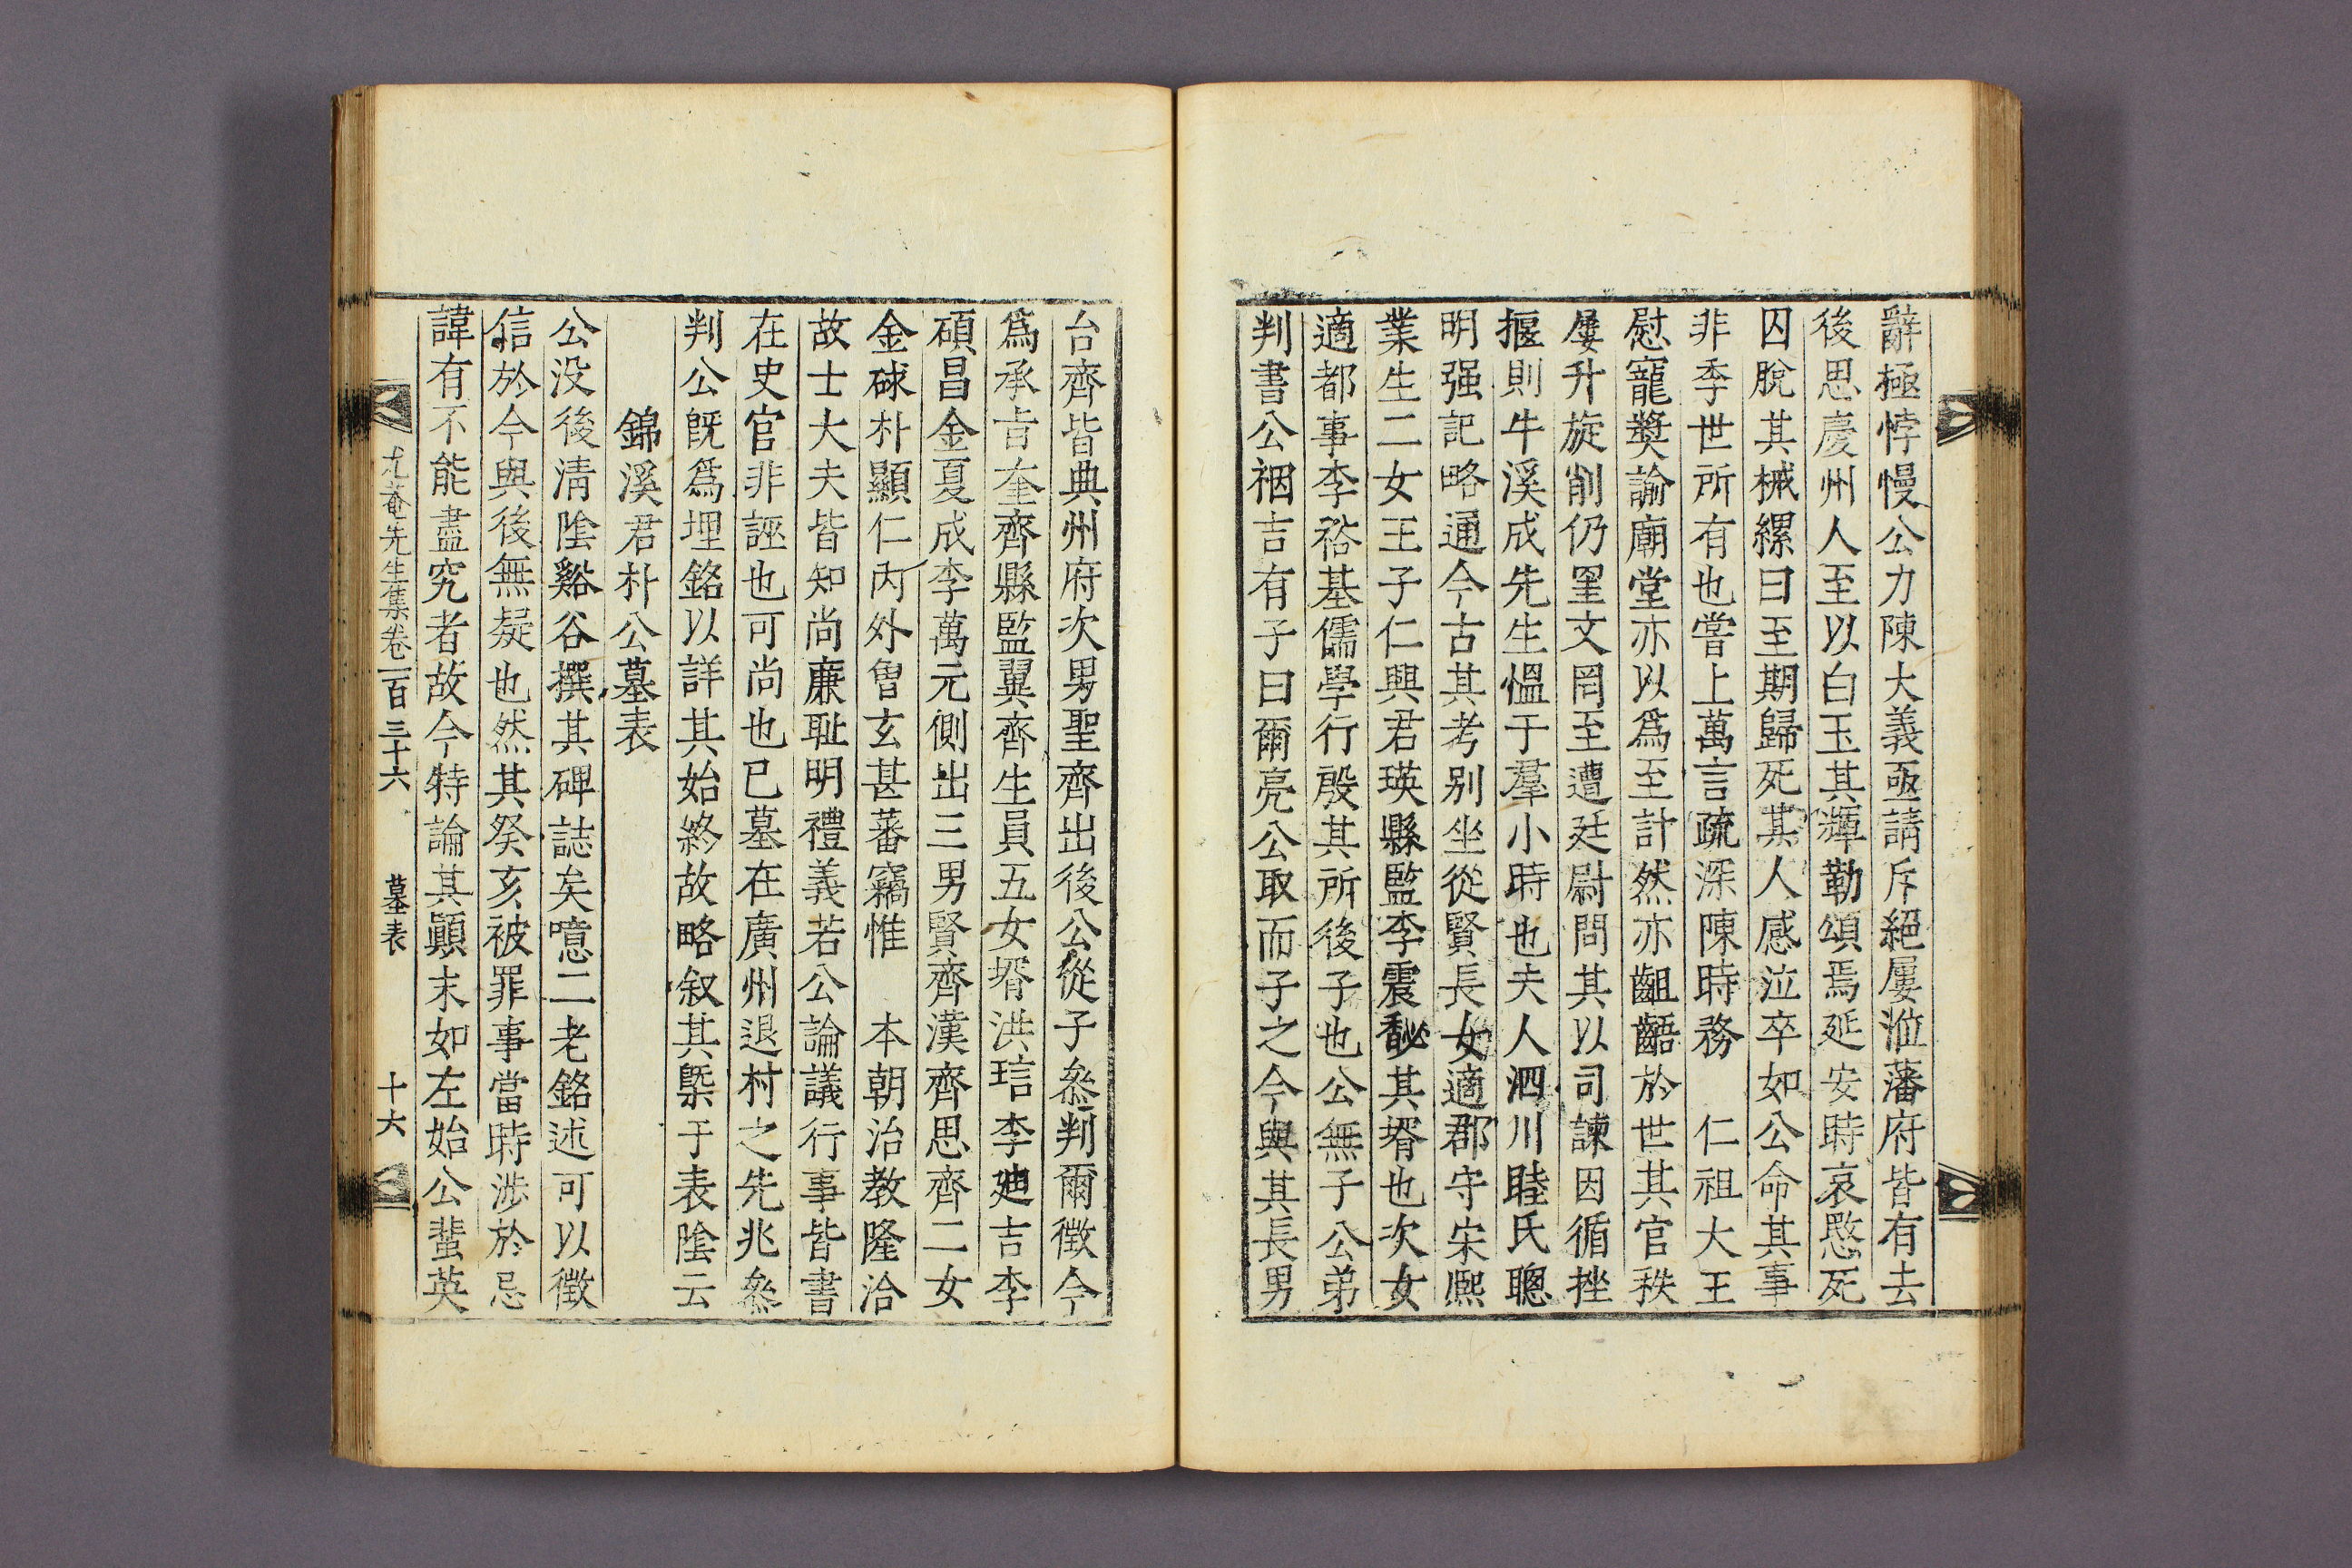 辭極悖慢公力陳大義亟請斥絕屢涖藩府皆有去
後思慶州人至以白玉其墠勒頌焉延安時哀愍死
囚脫其械縲曰至期歸死某人感泣卒如公命其事
非季世所有也嘗上萬言疏深陳時務　仁祖大王
慰寵獎諭廟堂亦以爲至計然亦齟齬於世其官秩
屢升旋削仍罣文罔至遭廷尉問其以司諫因循挫
揠則牛溪成先生慍于羣小時也夫人泗川睦氏聰
明强記略通今古其考別坐從賢長女適郡守宋熈
業生二女王子仁興君瑛縣監李震馝其壻也次女
適都事李𥙿基儒學行殷其所後子也公無子公弟
判書公䄄吉有子曰爾亮公取而子之今與其長男
台齊皆典州府次男聖齊出後公從子叅判爾徵今
爲承旨奎齊縣監翼齊生員五女壻洪琂李廸吉李
碩昌金夏成李萬元側出三男賢齊漢齊思齊二女
金砞朴顯仁內外曾玄甚蕃竊惟　本朝治敎隆洽
故士大夫皆知尚廉耻明禮義若公論議行事皆書
在史官非誣也可尚也已墓在廣州退村之先兆叅
判公旣爲埋銘以詳其始終故略叙其槩于表陰云
錦溪君朴公墓表
公没後淸陰谿谷撰其碑誌矣噫二老銘述可以徵
信於今與後無疑也然其癸亥被罪事當時涉於忌
諱有不能盡究者故今特論其顚末如左始公蜚英
尤菴先生集卷一百三十六　墓表　十六